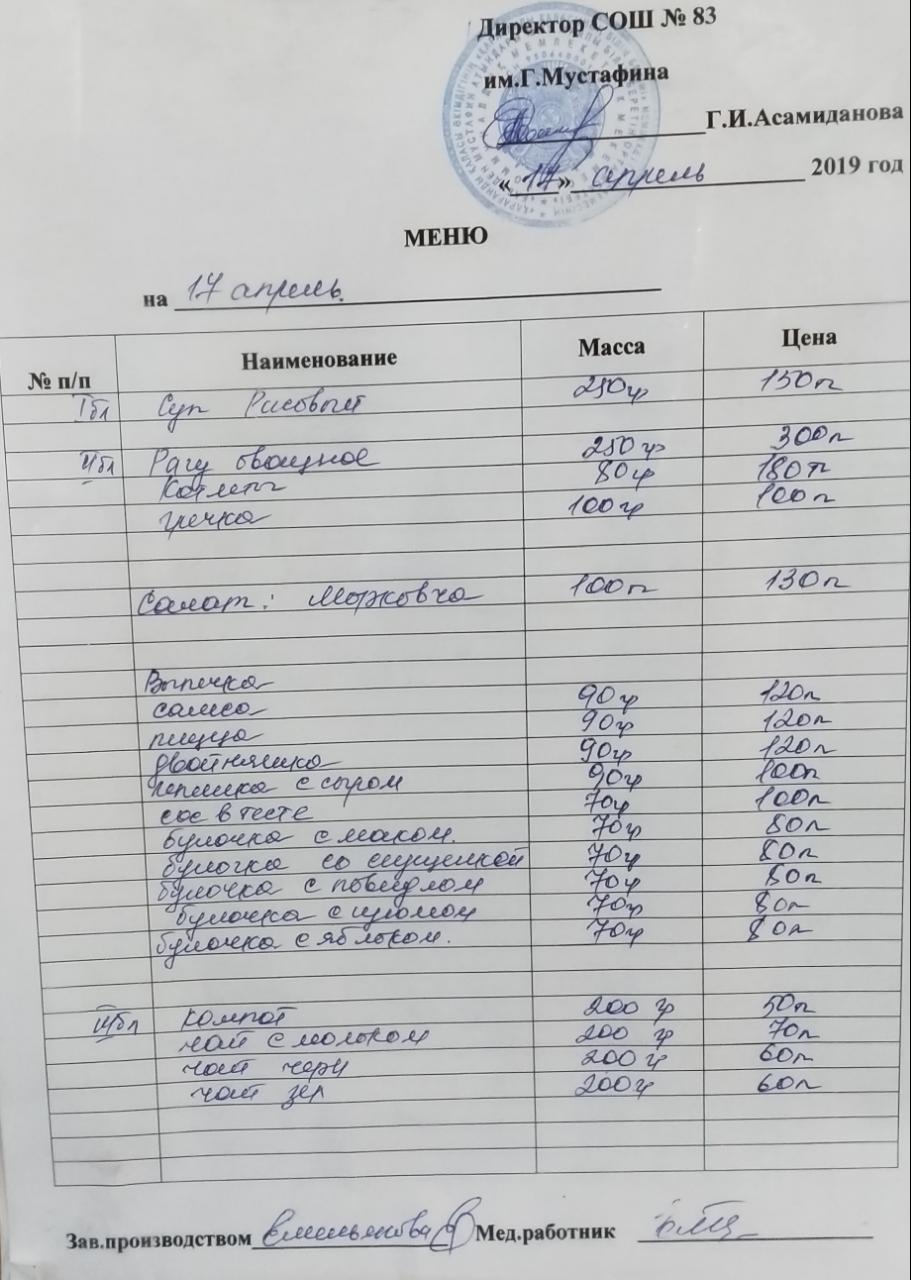 Директор СОШ № 83
им.Г.Мустафина
Г.И.Асамиданова
«17» апрель 2019 год
МЕНЮ
на 17 апрель.
№ п/п Наименование Масса Цена
I бл Суп Рисовый 250гр 150т
II бл Рагу овощное 250гр 300т
Котлеты 80гр 180т
гречка 100гр 100т
Салат: Морковча 100г 130т
Выпечка
самса 90гр 120т
пицца 90гр 120т
двойняшка 90гр 120т
лепешка с сыром 90гр 100т
сос в тесте 70гр 100т
булочка с маком. 70гр 80т
булочка со сгущенкой 70гр 80т
булочка с повидлом 70гр 80т
булочка с изюмом 70гр 80т
булочка с яблоком. 70гр 80т
III бл компот 200 гр 50т
чай с молоком 200 гр 70т
чай черн 200 гр 60т
чай зел 200гр 60т
Зав.производством Емельянова Мед.работник